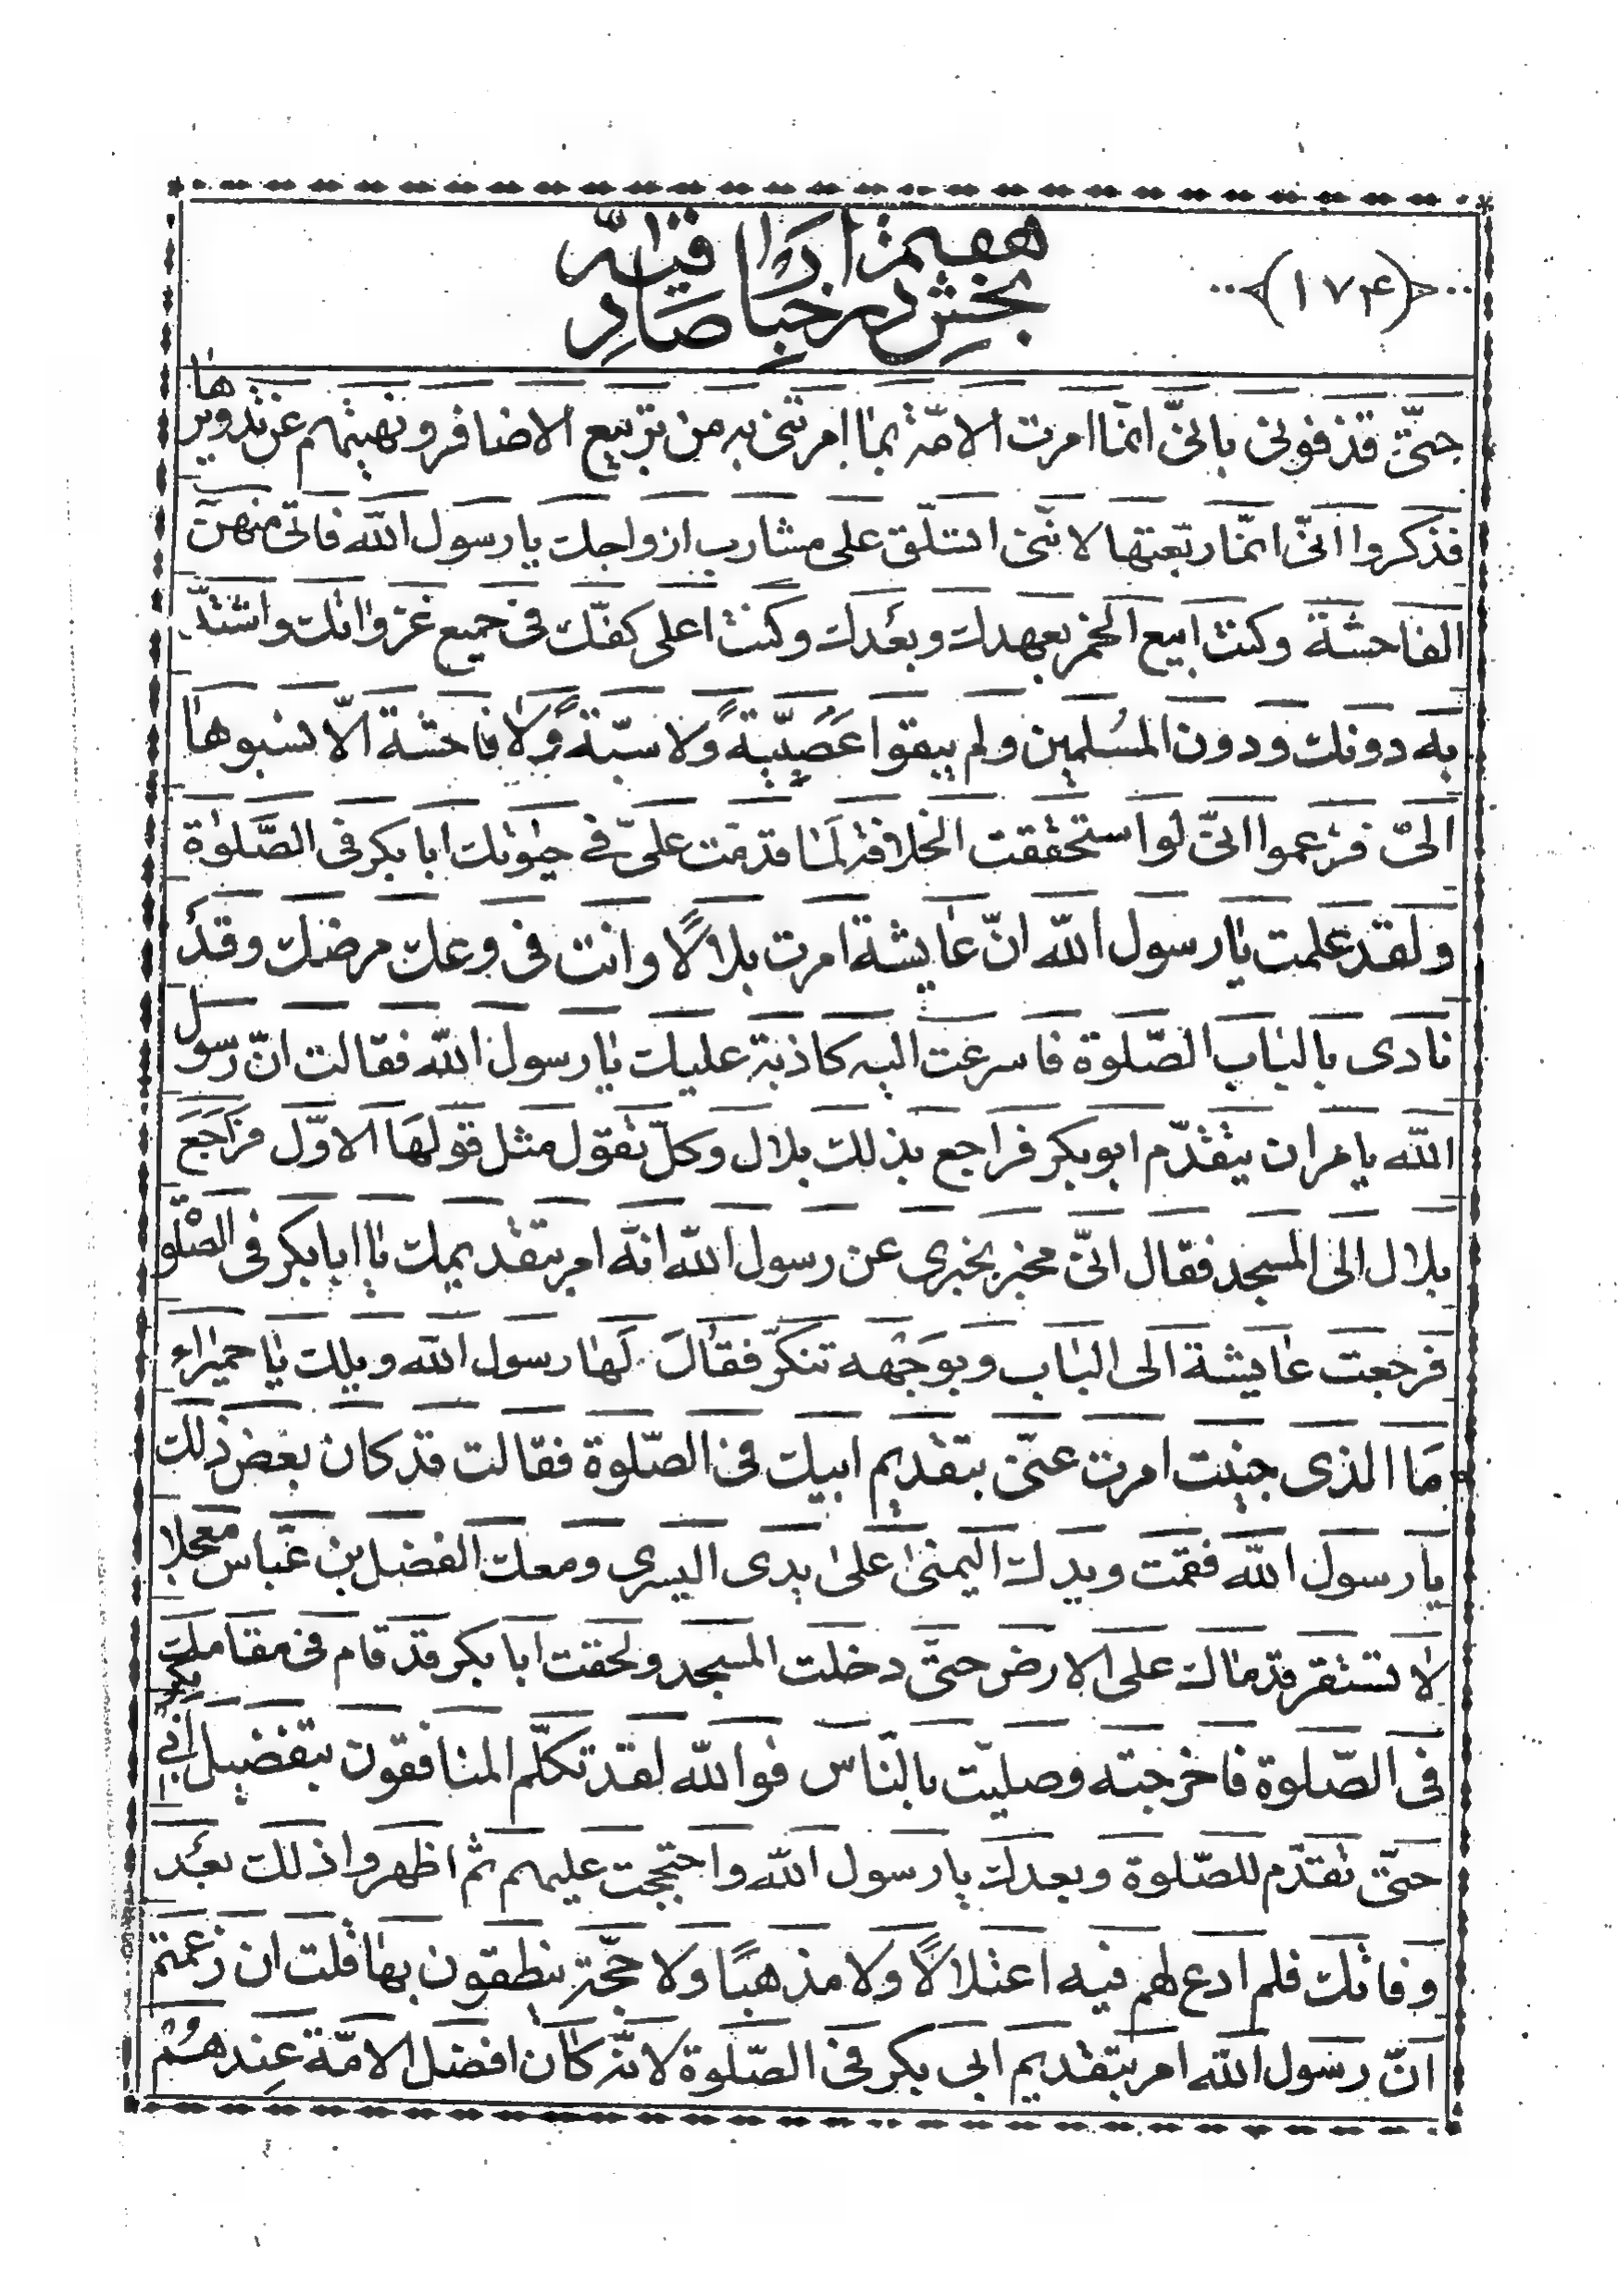 ﴿١٧۴﴾
بخش در اخبار صادر
حتّى قذفونى بانّى انّما امرت الامّة بما امرتنى به من تربيع الاضافر و نهيتهم عن تدويرها
فذكروا انّى انّما ربّعتها لانّنى اتسلّق على مشارب ازواجك يا رسول الله فاتى منهنّ
الفاحشة وكنت ابيع الخمر بعهدك وبعدك وكنت اعلى كفّك فى جميع غزواتك واشتدّ
به دونك ودون المسلمين ولم يبقوا عصبيّة ولا سبّة ولا فاحشة الّا نسبوها
الىّ فزعموا انّى لو استحققت الخلافة لما قدّمت علىّ فى حيوتك ابا بكر فى الصّلوة
ولقد علمت يا رسول الله انّ عايشة امرت بلالًا وانت فى وعك مرضك وقد
نادى بالباب الصّلوة فاسرعت اليه كاذبة عليك يا رسول الله فقالت انّ رسول
الله يامر ان يتقدّم ابو بكر فراجع بذلك بلال وكلّ تقول مثل قولها الاوّل فراجع
بلال الى المسجد فقال انّى مخبر بخبرى عن رسول الله انّه امر بتقديمك يا ابا بكر فى الصّلوة
فرجعت عايشة الى الباب وبوجهه تنكّر فقال لها رسول الله ويلك يا حميراء
ما الذى جنيت امرت عنّى بتقديم ابيك فى الصّلوة فقالت قد كان بعض ذلك
يا رسول الله فقمت ويدك اليمنى على يدى اليسرى ومعك الفضل بن عبّاس معجلا
لا تستقر قدماك على الارض حتّى دخلت المسجد ولحقت ابا بكر قد قام فى مقامك
فى الصّلوة فاخرجته وصليّت بالنّاس فوالله لقد تكلّم المنافقون بتفضيل ابى بكر
حتّى تقدّم للصّلوة وبعدك يا رسول الله واحتججت عليهم ثم اظهروا ذلك بعد
وفاتك فلم ادع لهم فيه اعتلالًا ولا مذهبًا ولا حجّة ينطقون بها قلت ان زعمتم
انّ رسول الله امر بتقديم ابى بكر فى الصّلوة لانّه كان افضل الامّة عندهم